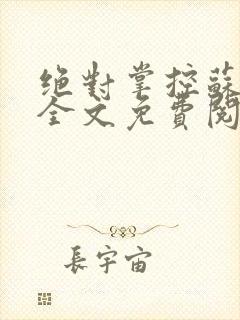 絕對掌控蘇
全文免費閱
長宇宙